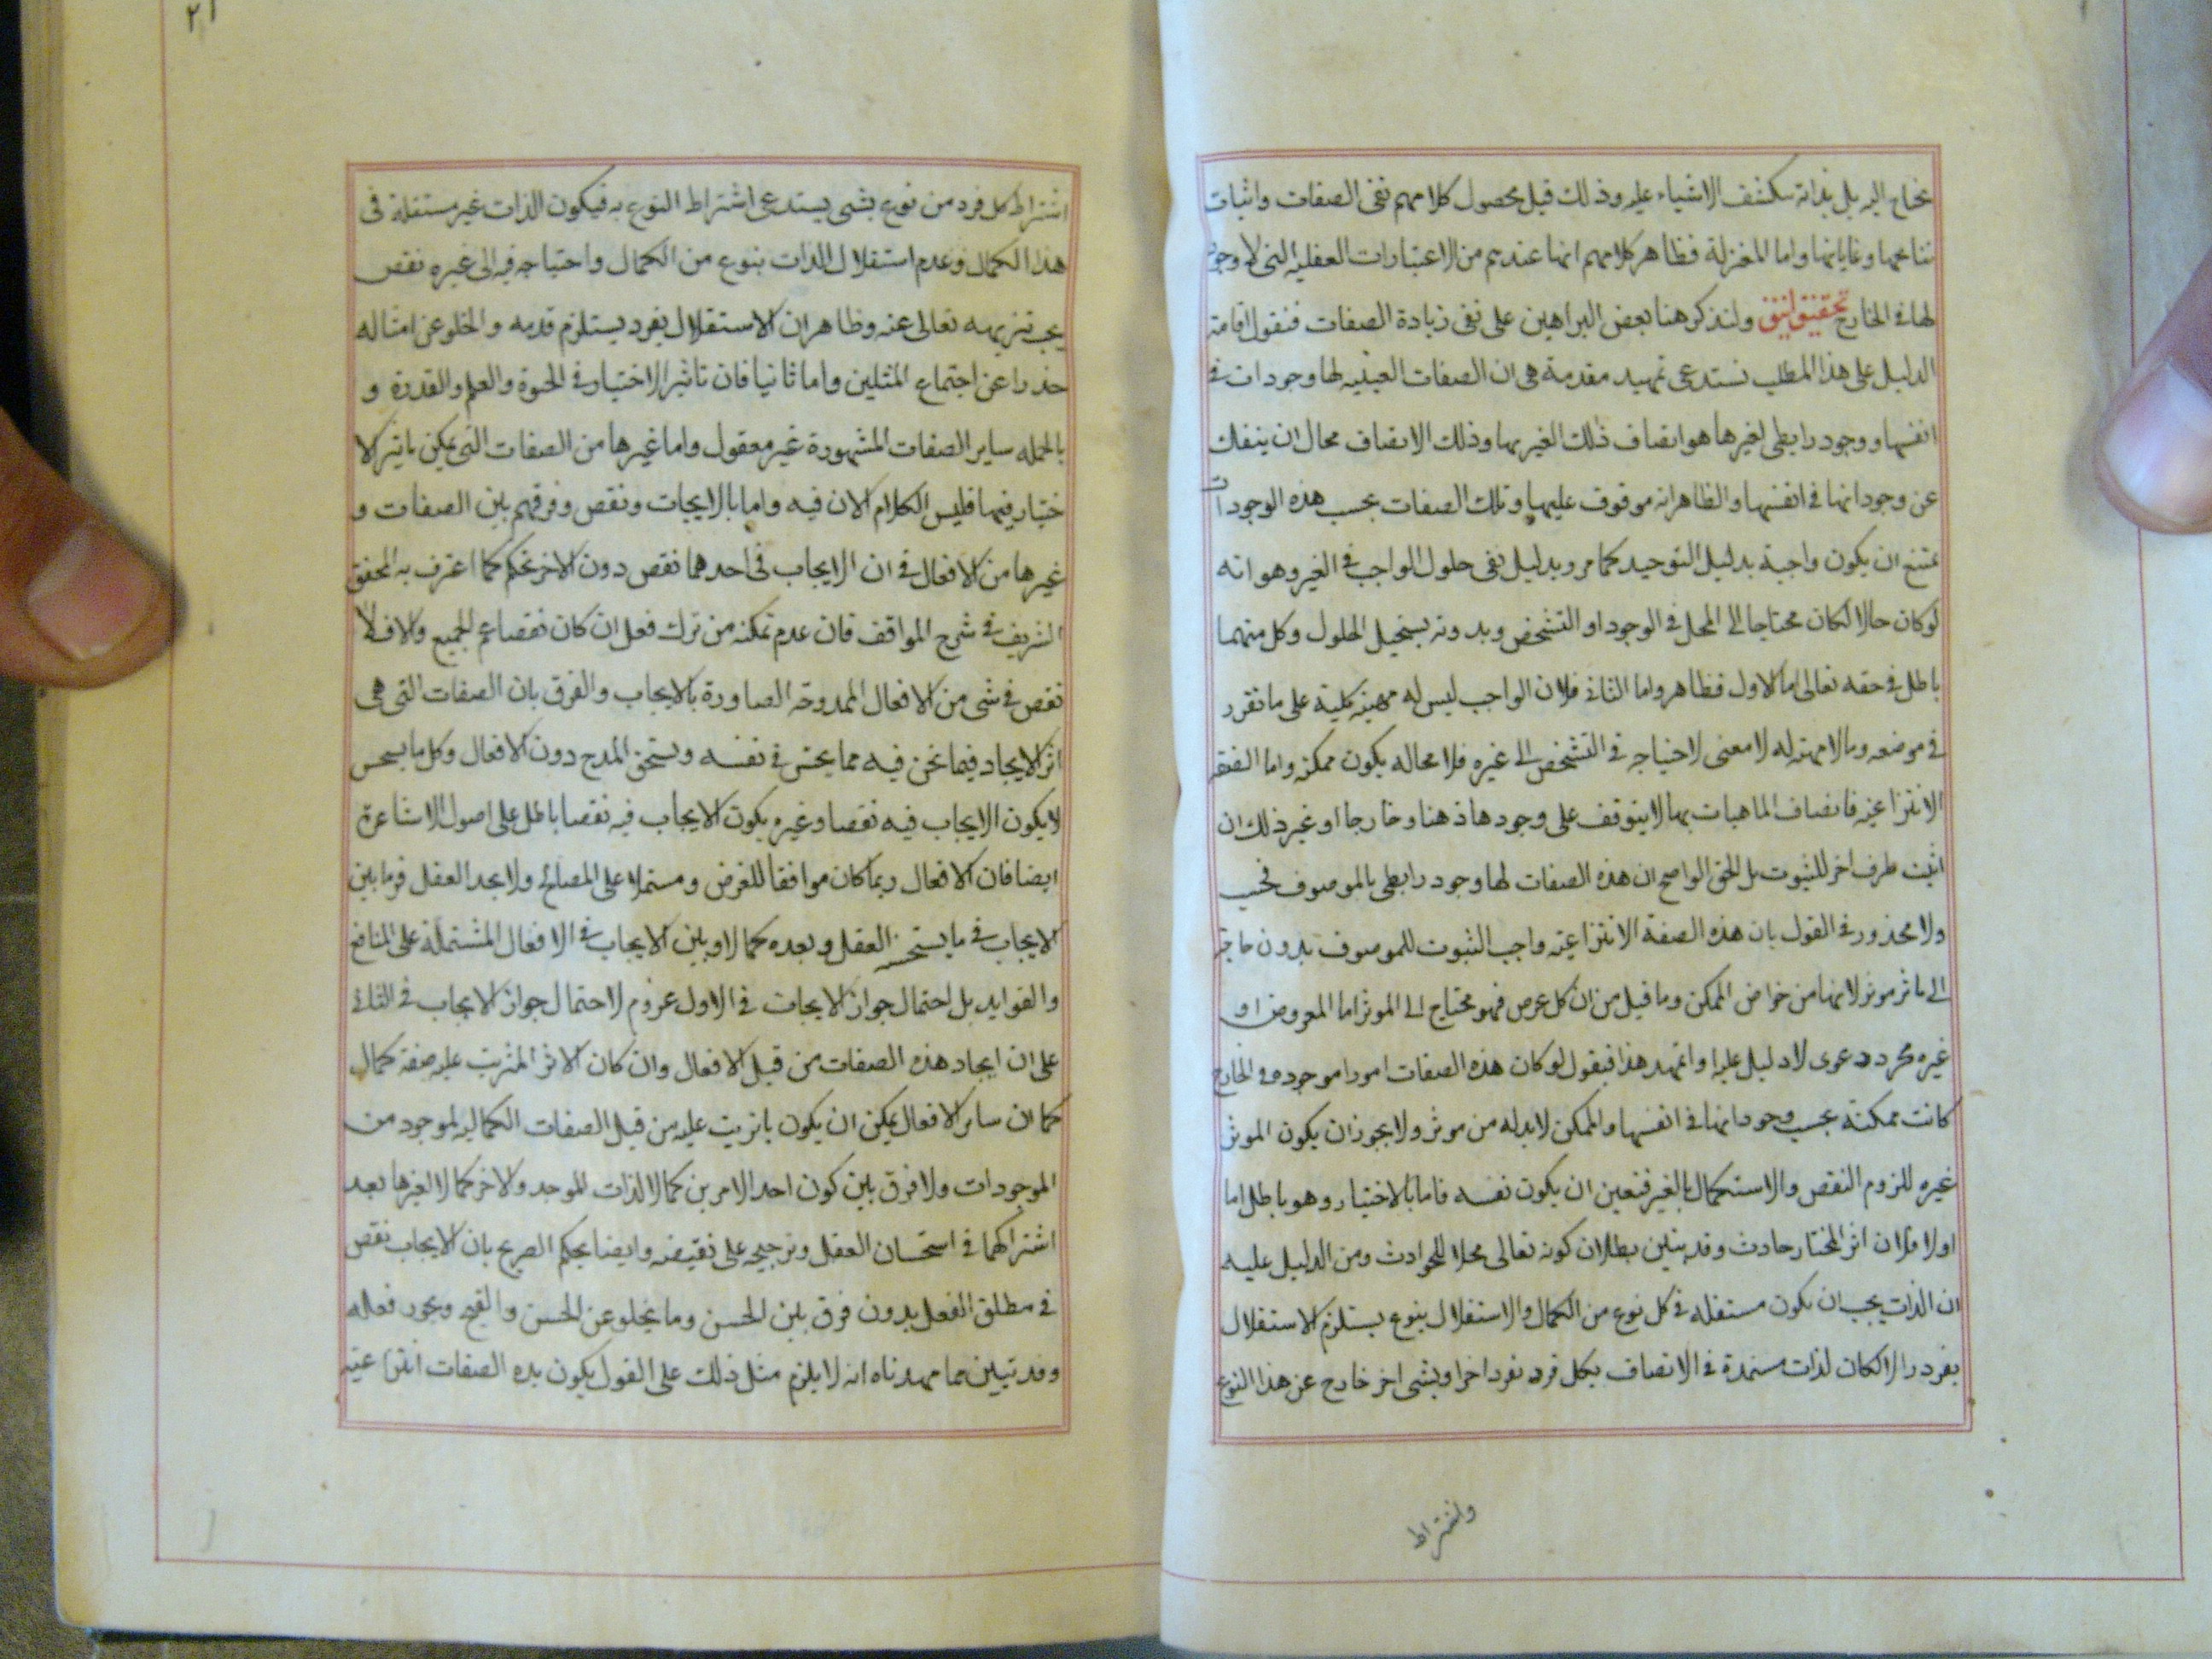 يحتاج اليه بل بذاته تنكشف الاشياء عليه وذلك قيل محصول كلامهم نفى الصفات واثبات
نتائجها وغاياتها واما المعتزلة فظاهر كلامهم انها عندهم من الاعتبارات العقليه التى لا وجود
لها فى الخارج تحقيق انيق ولنذكر هنا بعض البراهين على نفى زيادة الصفات فنقول اقامة
الدليل على هذا المطلب تستدعى تمهيد مقدمة هى ان الصفات العينيه لها وجودات فى
انفسها ووجود رابطى لغيرها هو اتصاف ذلك الغير بها وذلك الاتصاف محال ان ينفك
عن وجوداتها فى انفسها والظاهر انه موقوف عليها وتلك الصفات بحسب هذه الوجودات
يمتنع ان يكون واجبة بدليل التوحيد كما مر وبدليل نفى حلول الواجب فى الغير وهو انه
لو كان حالا لكان محتاجا الى المحل فى الوجود او التشخص وبدونه يستحيل الحلول وكل منهما
باطل فى حقه تعالى اما الاول فظاهر واما الثانى فلان الواجب ليس له مهية كلية على ما تقرر
فى موضعه وما لا مهية له لا معنى لاحتياجه فى التشخص الى غيره فلا محاله يكون ممكنه واما الصفة
الانتزاعيه فاتصاف الماهيات بها لا يتوقف على وجودها ذهنا وخارجا او غير ذلك ان
اثبت طرف اخر للثبوت بل الحق الواضح ان هذه الصفات لها وجود رابطى بالموصوف فحسب
ولا محذور فى القول بان هذه الصفة الانتزاعيه واجب الثبوت للموصوف بدون حاجة
الى تاثر موثر لانها من خواص الممكن وما قيل من ان كل عرض فهو محتاج الى الموثر اما المعروض او
غيره مجرد دعوى لا دليل عليه واذا تمهد هذا فيقول لو كان هذه الصفات امورا موجوده فى الخارج
كانت ممكنة بحسب وجوداتها فى انفسها والممكن لا بد له من موثر ولا يجوز ان يكون الموثر
غيره للزوم النقص والاستكمال بالغير فتعين ان يكون نفسه فاما بالاختيار وهو باطل اما
اولا فلان اثر المختار حادث وقد يتبين بطلان كونه تعالى محلا للحوادث ومن الدليل عليه
ان الذات يجب ان يكون مستقله فى كل نوع من الكمال والاستقلال بنوع يستلزم الاستقلال
بفرد والا لكان لذات مستمدة فى الاتصاف بكل فرد بفرد اخر او بشى اخر خارج عن هذا النوع
واشتراط
٢١
اشتراط كل فرد من نوع بشى يستدعى اشتراط النوع به فيكون الذات غير مستقلة فى
هذا الكمال وعدم استقلال الذات بنوع من الكمال واحتياجه فيه الى غيره نقص
يجب تنزيهه تعالى عنه وظاهر ان الاستقلال بفرد يستلزم قدمه والخلو عن امثاله
حذرا عن اجتماع المثلين واما ثانيا فان تاثير الاختيار فى الحيوة والعلم والقدرة و
بالجمله ساير الصفات المشهورة غير معقول واما غيرها من الصفات التى يمكن تاثير الا
ختيار فيها فليس الكلام الان فيه واما بالايجاب ونقص وفرقهم بين الصفات و
غيرها من الافعال فى ان الايجاب فى احدهما نقص دون الاخر تحكم كما اعترف به المحقق
الشريف فى شرح المواقف فان عدم تمكنه من ترك فعل ان كان نقصا عم الجميع والا فلا
نقص فى شى من الافعال الممدوحة الصاورة بالايجاب والفرق بان الصفات التى هى
اثر الايجاد فيما نحن فيه مما يحسن فى نفسه ويستحق المدح دون الافعال وكل ما يستحسن
لا يكون الايجاب فيه نقصا وغيره يكون الايجاب فيه نقصا باطل على اصول الاشاعرة
ايضا فان الافعال ربما كان موافقا للغرض ومشتملا على المصالح ولا يجد العقل فرقا بين
الايجاب فى ما يستحسنه العقل ويعده كمالا وبين الايجاب فى الافعال المشتملة على المنافع
والفوايد بل احتمال جواز الايجاب فى الاول ملزوم لاحتمال جواز الايجاب فى الثانى
على ان ايجاد هذه الصفات من قبيل الافعال وان كان الاثر المترتب عليه صفة كمال
كما ان ساير الافعال يمكن ان يكون ما يترتب عليه من قبيل الصفات الكماليه لموجود من
الموجودات ولا فرق بين كون احد الامرين كمالا لذات الموجد والاخر كمالا لغيرها بعد
اشتراكهما فى استحسان العقل وترجيحه على نقيضه وايضا يحكم الصريح بان الايجاب نقص
فى مطلق الفعل بدون فرق بين الحسن وما يخلو عن الحسن والقبح ويجوز فعله
وقد تبيين مما مهدناه انه لا يلزم مثل ذلك على القول بكون بده الصفات انتزاعية